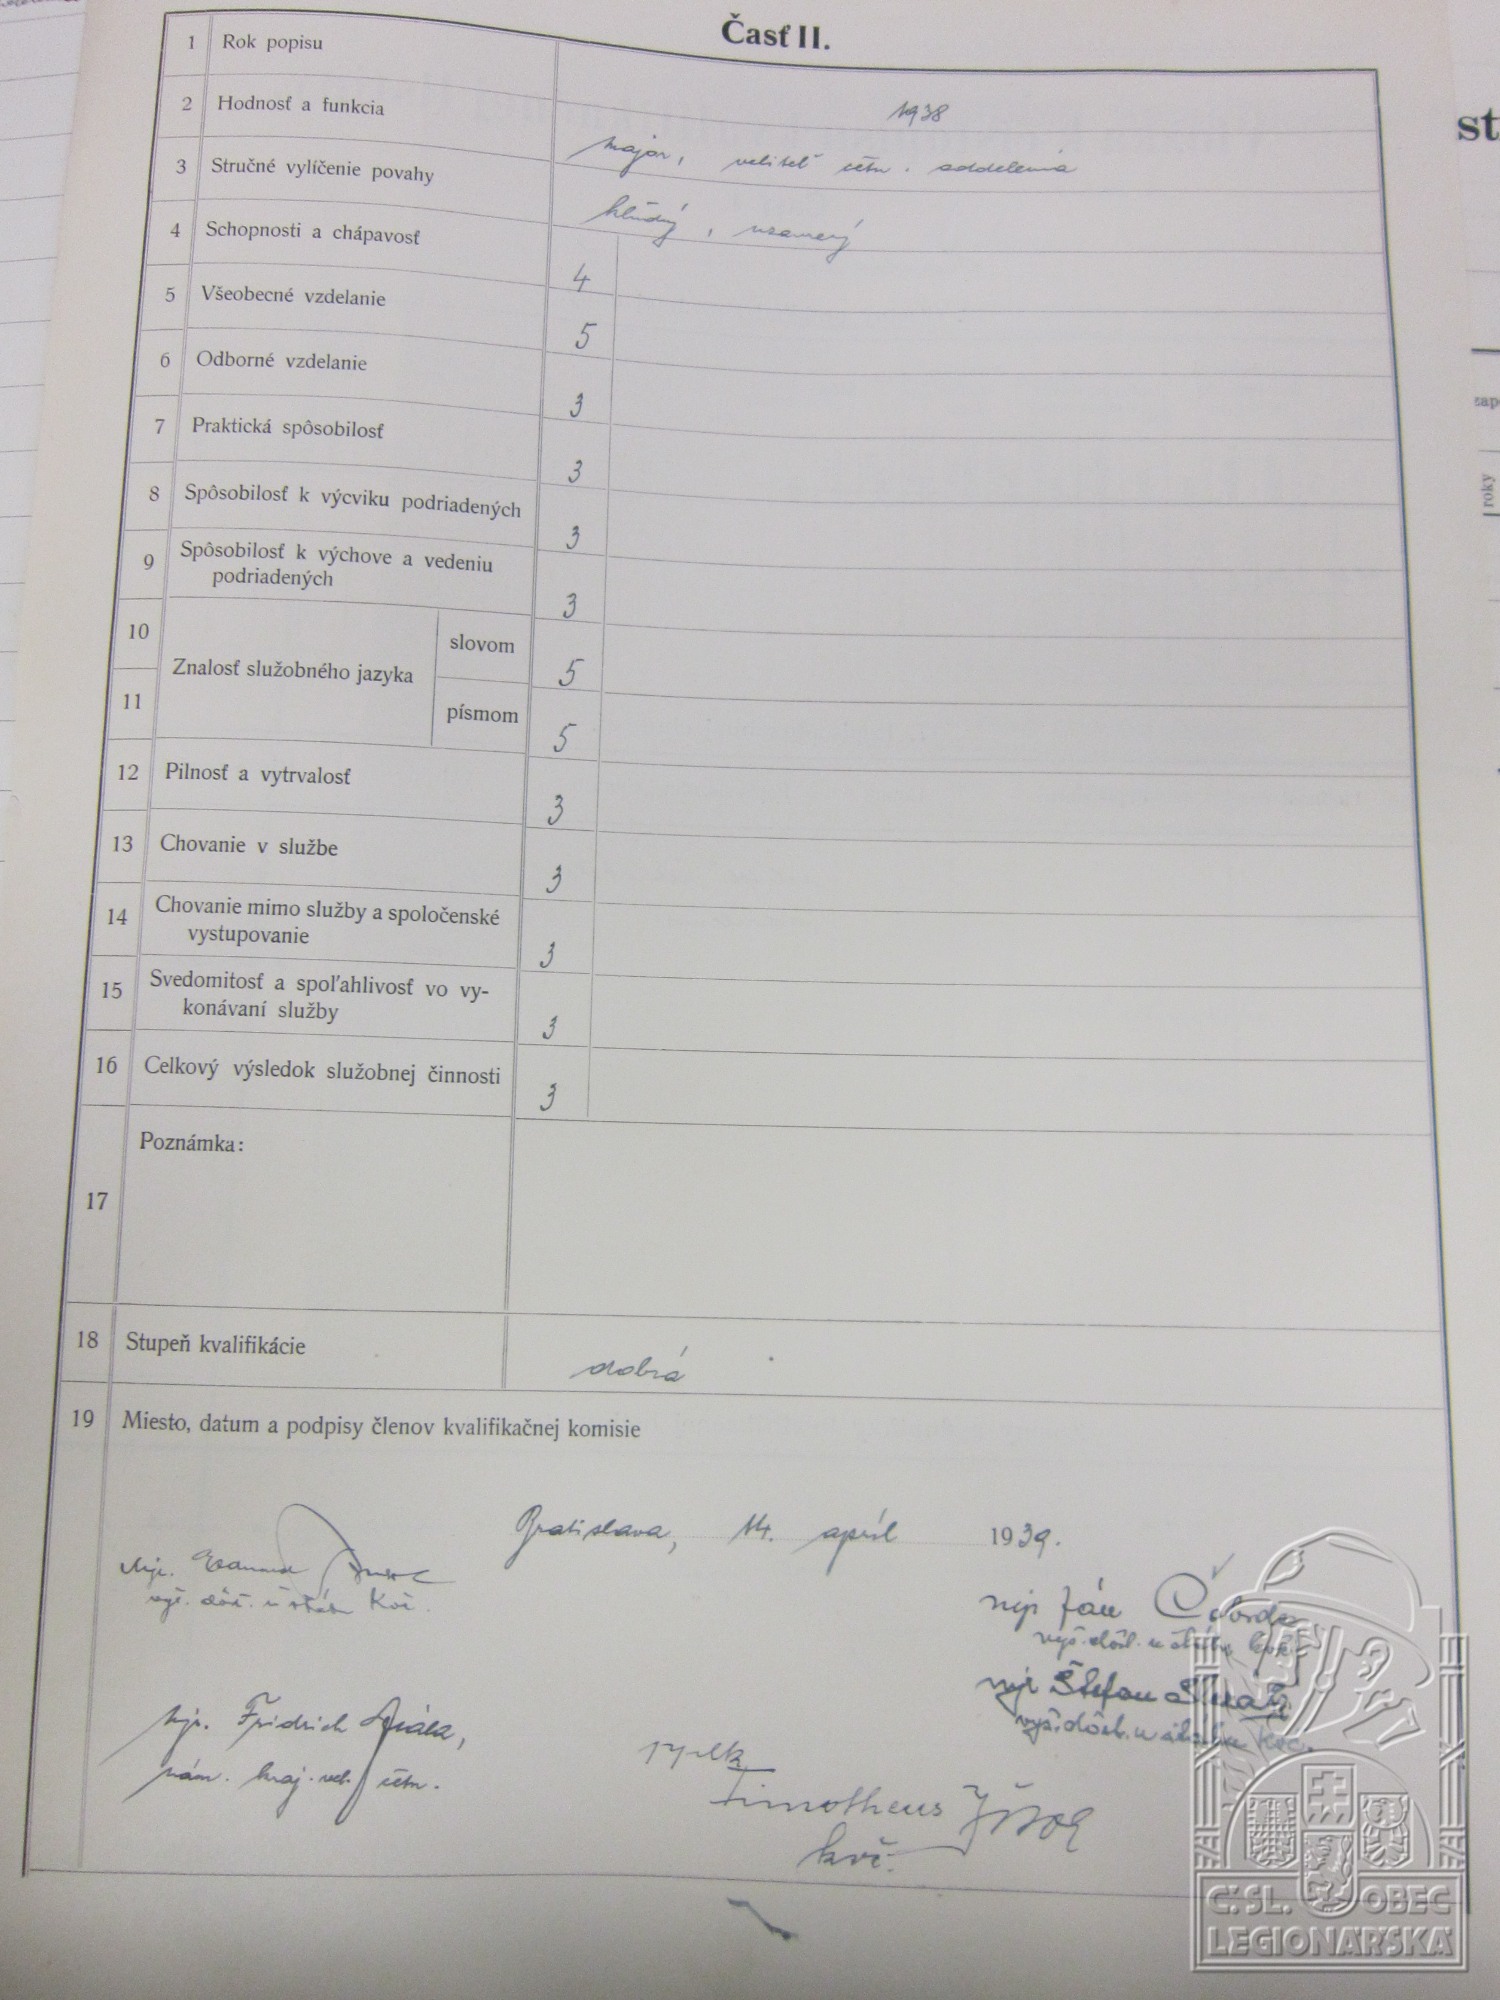 Časť II.
1 Rok popisu 1938
2 Hodnosť a funkcia major, veliteľ četn. oddelenia
3 Stručné vylíčenie povahy kľudný, uzavrený
4 Schopnosti a chápavosť 4
5 Všeobecné vzdelanie 5
6 Odborné vzdelanie 3
7 Praktická spôsobilosť 3
8 Spôsobilosť k výcviku podriadených 3
9 Spôsobilosť k výchove a vedeniu
podriadených 3
10 Znalosť služobného jazyka slovom 5
11 písmom 5
12 Pilnosť a vytrvalosť 3
13 Chovanie v službe 3
14 Chovanie mimo služby a spoločenské
vystupovanie 3
15 Svedomitosť a spoľahlivosť vo vy-
konávaní služby 3
16 Celkový výsledok služobnej činnosti 3
17 Poznámka:
18 Stupeň kvalifikácie dobrá
19 Miesto, datum a podpisy členov kvalifikačnej komisie
Bratislava, 14. apríl 1939.
Mjr.
vyš. dôst. u štábu kvč.
mjr Ján
vyš. dôst. u štábu kvč.
mjr Štefan
vyš. dôst. u štábu kvč.
Mjr. Fridrich
nám. kraj. vel. četn.
pplk
Timotheus
kvč.
st
zap
roky
Č.SL. OBEC
LEGIONÁŘSKÁ